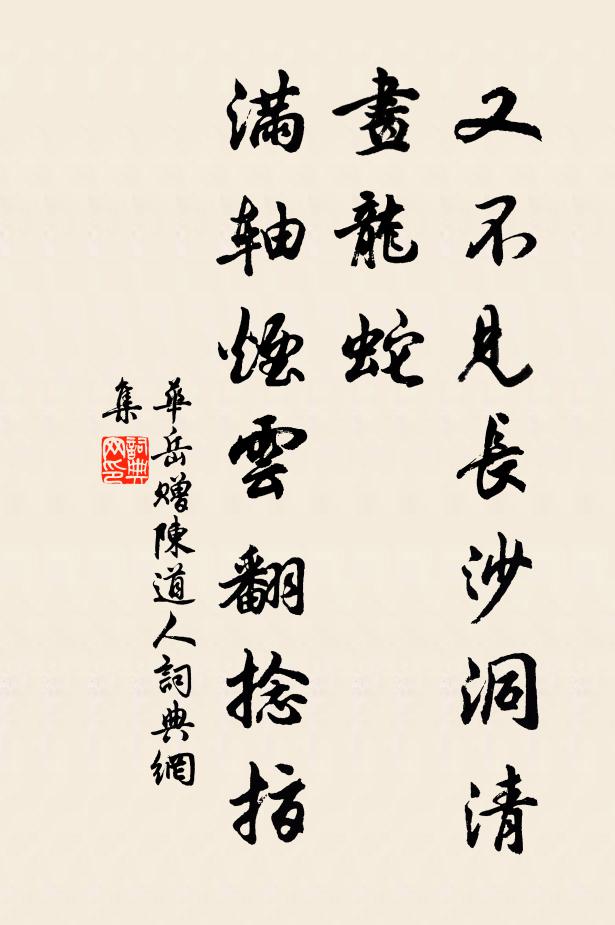 又不見長沙洞清
畫龍蛇
滿軸煙雲翻捻指
華岳贈陳道人詞典網
集
詞典
网印